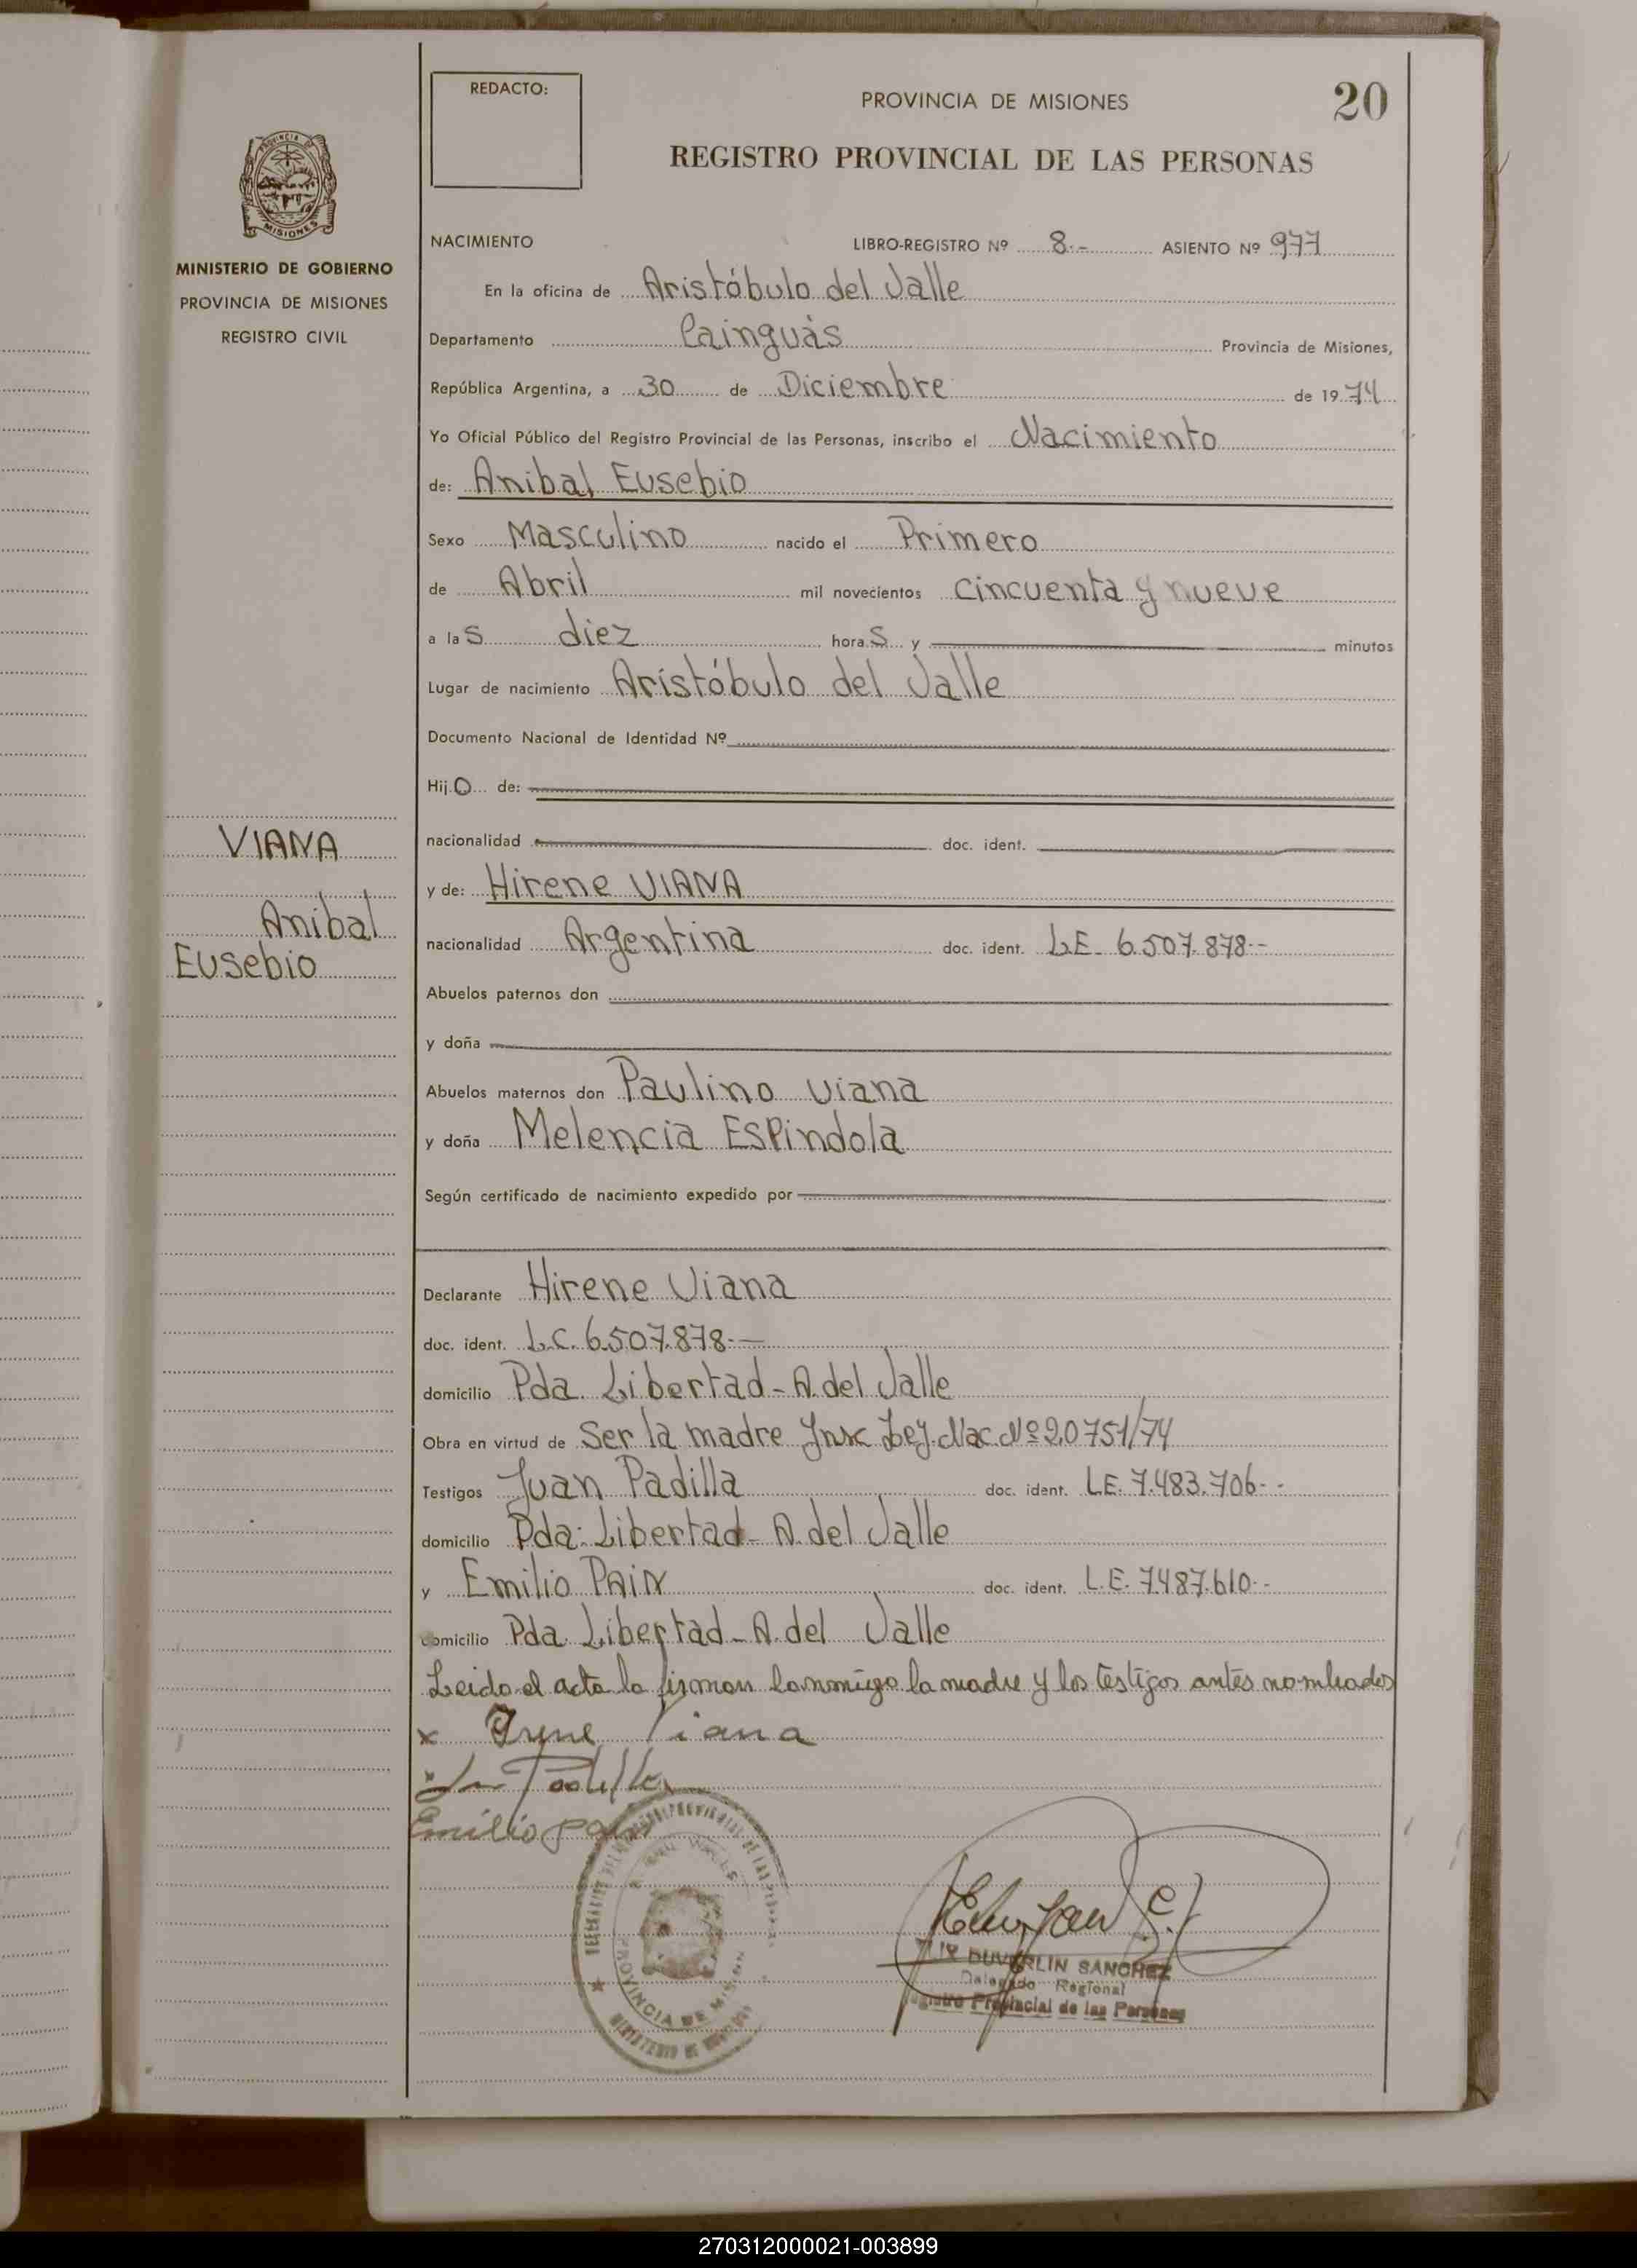 REDACTO:
PROVINCIA DE MISIONES
20
REGISTRO PROVINCIAL DE LAS PERSONAS
PROVINCIA DE
MISIONES
MINISTERIO DE GOBIERNO
PROVINCIA DE MISIONES
REGISTRO CIVIL
NACIMIENTO LIBRO-REGISTRO Nº 8.- ASIENTO Nº 977
En la oficina de Aristóbulo del Valle
Departamento Cainguás Provincia de Misiones,
República Argentina, a 30 de Diciembre de 1974
Yo Oficial Público del Registro Provincial de las Personas, inscribo el Nacimiento
de: Anibal Eusebio
Sexo Masculino nacido el Primero
de Abril mil novecientos cincuenta y nueve
a las diez horas y minutos
Lugar de nacimiento Aristóbulo del Valle
Documento Nacional de Identidad Nº
Hijo de:
nacionalidad doc. ident.
VIANA
Anibal
Eusebio
y de: Hirene VIANA
nacionalidad Argentina doc. ident. L.E. 6.507.878.-
Abuelos paternos don
y doña
Abuelos maternos don Paulino Viana
y doña Melencia ESPindola
Según certificado de nacimiento expedido por
Declarante Hirene Viana
doc. ident. L.C. 6.507.878.-
domicilio Pda. Libertad - A. del Valle
Obra en virtud de Ser la madre Insc. Ley. Nac. Nº 20751/74
Testigos Juan Padilla doc. ident. LE. 7.483.706.-
domicilio Pda: Libertad - A. del Valle
y Emilio doc. ident. L.E. 7487.610.-
domicilio Pda. Libertad - A. del Valle
Leido el acta la firman conmigo la madre y los testigos antes nombrados
x Irene Viana
x Padilla
Emilio
PROVINCIA DE
DUVERLIN SANCHEZ
Delegado Regional
Registro Provincial de las Personas
270312000021-003899